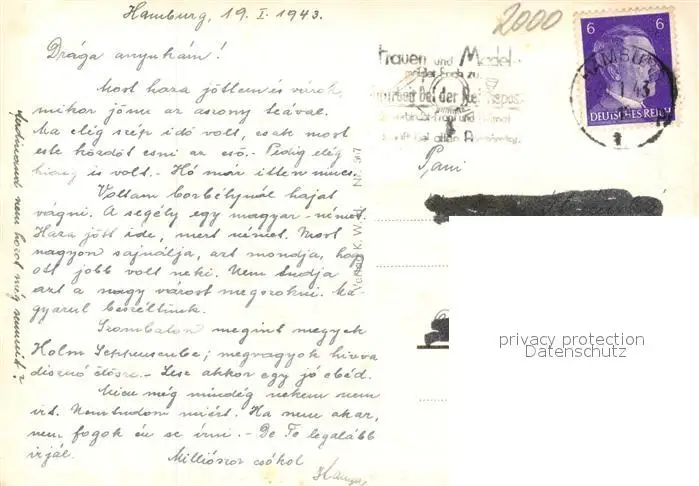 Hamburg, 19. I. 1943.
2000
6 6
DEUTSCHES REICH
Frauen und Mädel
bei der Reichspost
Drága anyukám!
Most haza jöttem és várok,
mikor jön az asszony teával.
Ma elég szép idő volt, csak most
este kezdet esni az eső. - Pedig elég
hideg is volt. - Hó már itten nincs.
Voltam borbélynál hajat
vágni. A segély egy magyar-német.
Haza jött ide, mert német. Most
nagyon sajnálja, azt mondja, hogy
ott jobb volt neki. Nem tudja
azt a nagy várost megszokni. Ma-
gyarul beszéltünk.
Szombaton megint megyek
Holm Seppensenbe; megvagyok hivva
disznó ölésre. - Lesz akkor egy jó ebéd.
Micu még mindég nekem nem
irt. Nemtudom miért. Ha nem akar,
nem fogok én se irni. - De Te legalább
irjál.
Milliószor csókol
nem hozott még semmit?
Verlag K. W. H. Nr. 567
Pani
privacy protection
Datenschutz